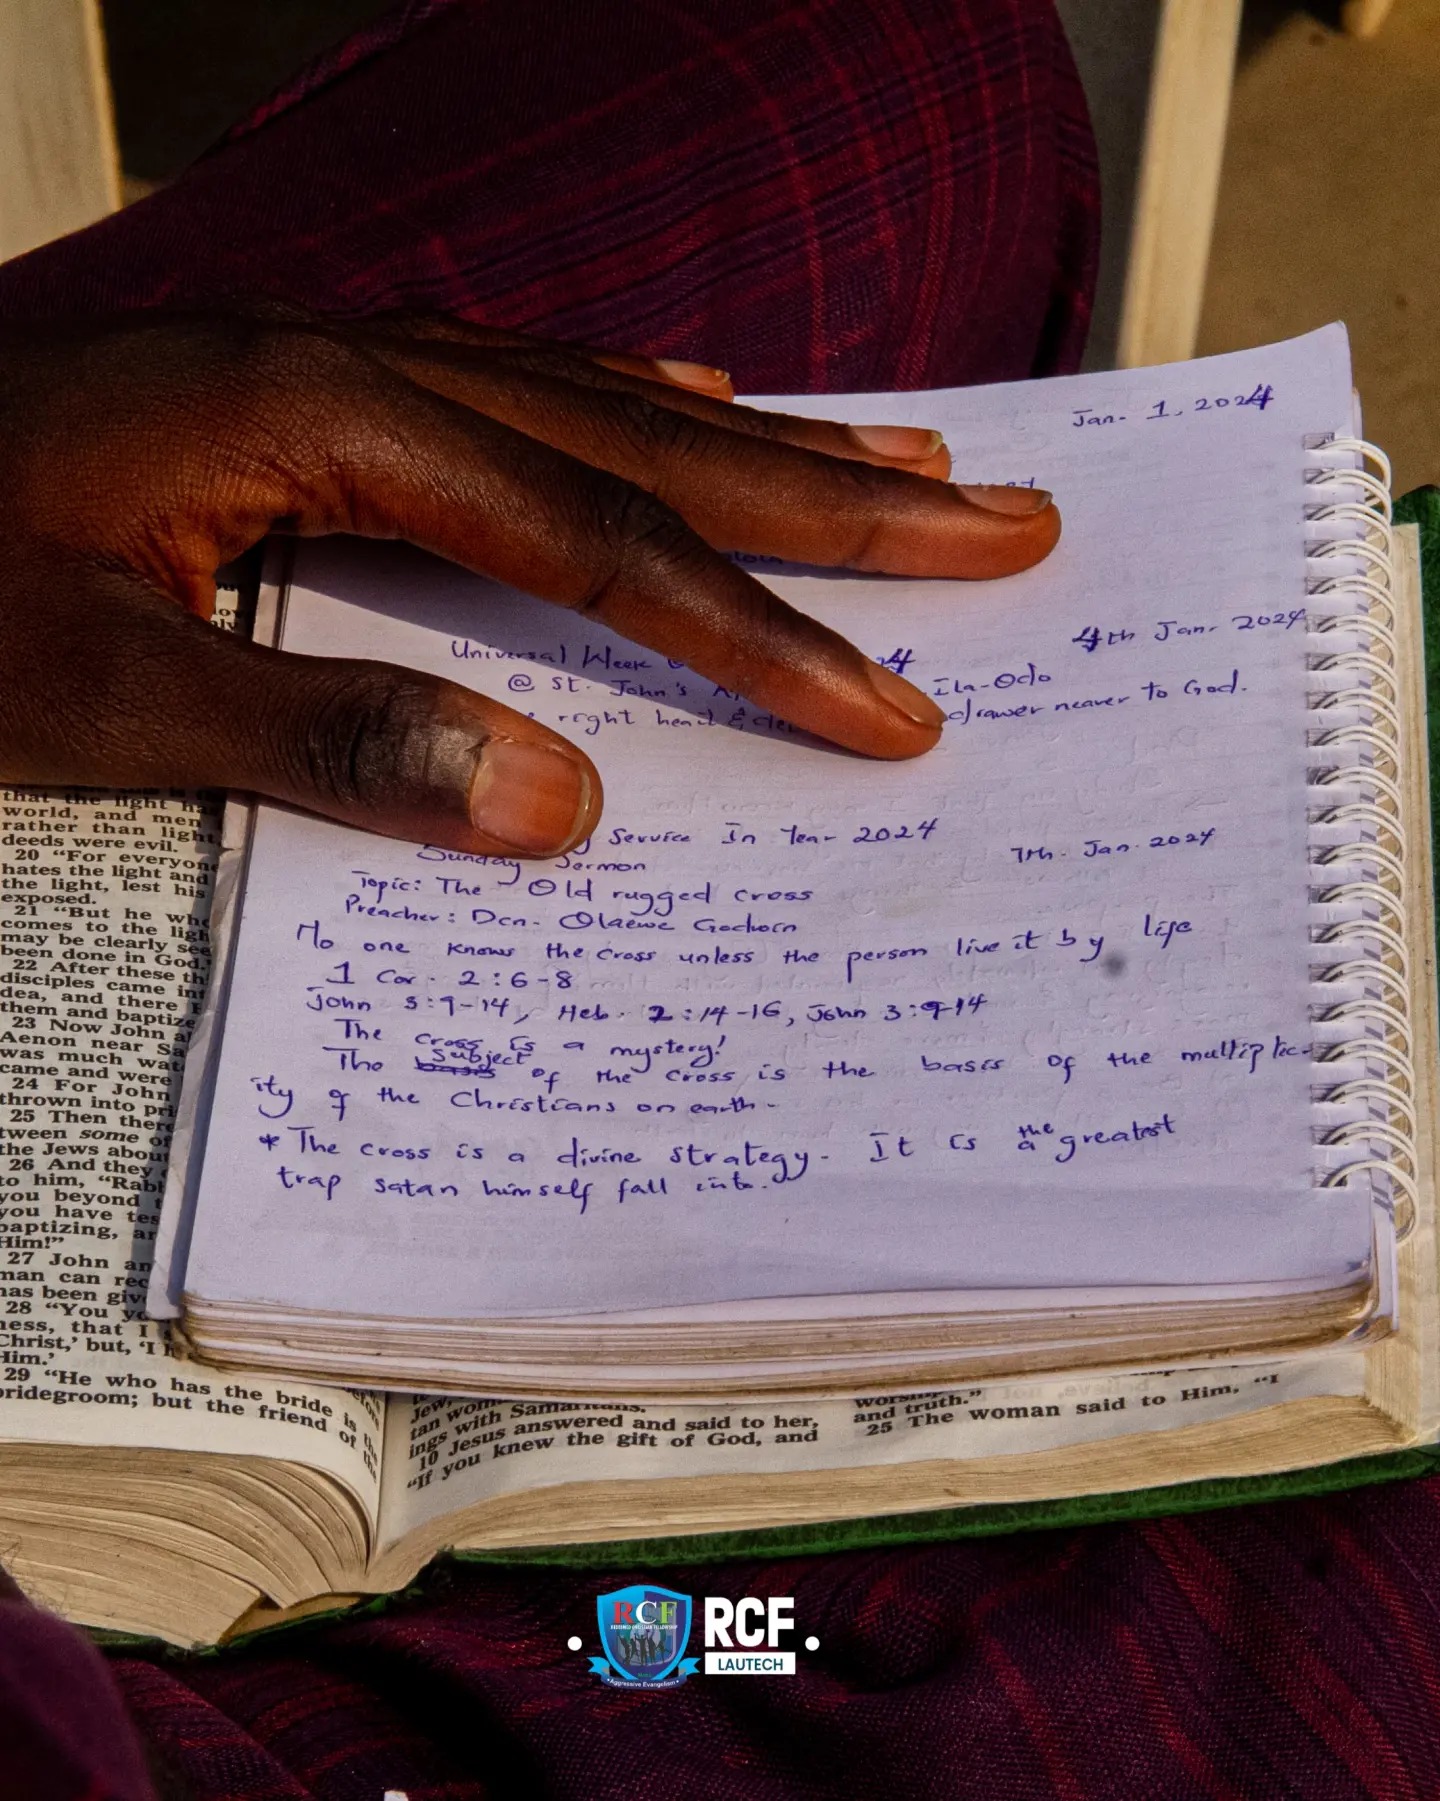 Jan. 1, 2024
4th Jan. 2024
Universal Week
@ St. John's
Ila-Odo
right heart &
drawer nearer to God.
Service In Year 2024
7th. Jan. 2024
Sunday Sermon
Topic: The Old rugged cross
Preacher: Dcn. Olaewe
No one knows the cross unless the person live it by life
1 Cor. 2:6-8
John 3:9-14, Heb. 2:14-16, John 3:9-14
The cross is a mystery!
The subject of the cross is the basis of the multiplic-
ity of the Christians on earth.
* The cross is a divine strategy. It is the greatest
trap satan himself fall into.
that the light
world, and men
rather than light,
deeds were evil.
20 "For everyone
hates the light and
the light, lest his
exposed.
21 "But he who
comes to the light
may be clearly
been done in God."
22 After these
disciples came
and there
them and
23 Now John
Aenon near
was much
came and were
24 For John
thrown into
25 Then there
some of
the Jews about
26 And they
to him,
you beyond
you have
baptizing,
Him!"
27 John
man can
has been
28 "You
that I
Christ,' but, 'I
Him.'
29 "He who has the bride is the
bridegroom; but the friend of the
Jew,
ings with Samaritans.
10 Jesus answered and said to her,
"If you knew the gift of God, and
and truth."
25 The woman said to Him, "I
RCF
Aggressive Evangelism
RCF
LAUTECH